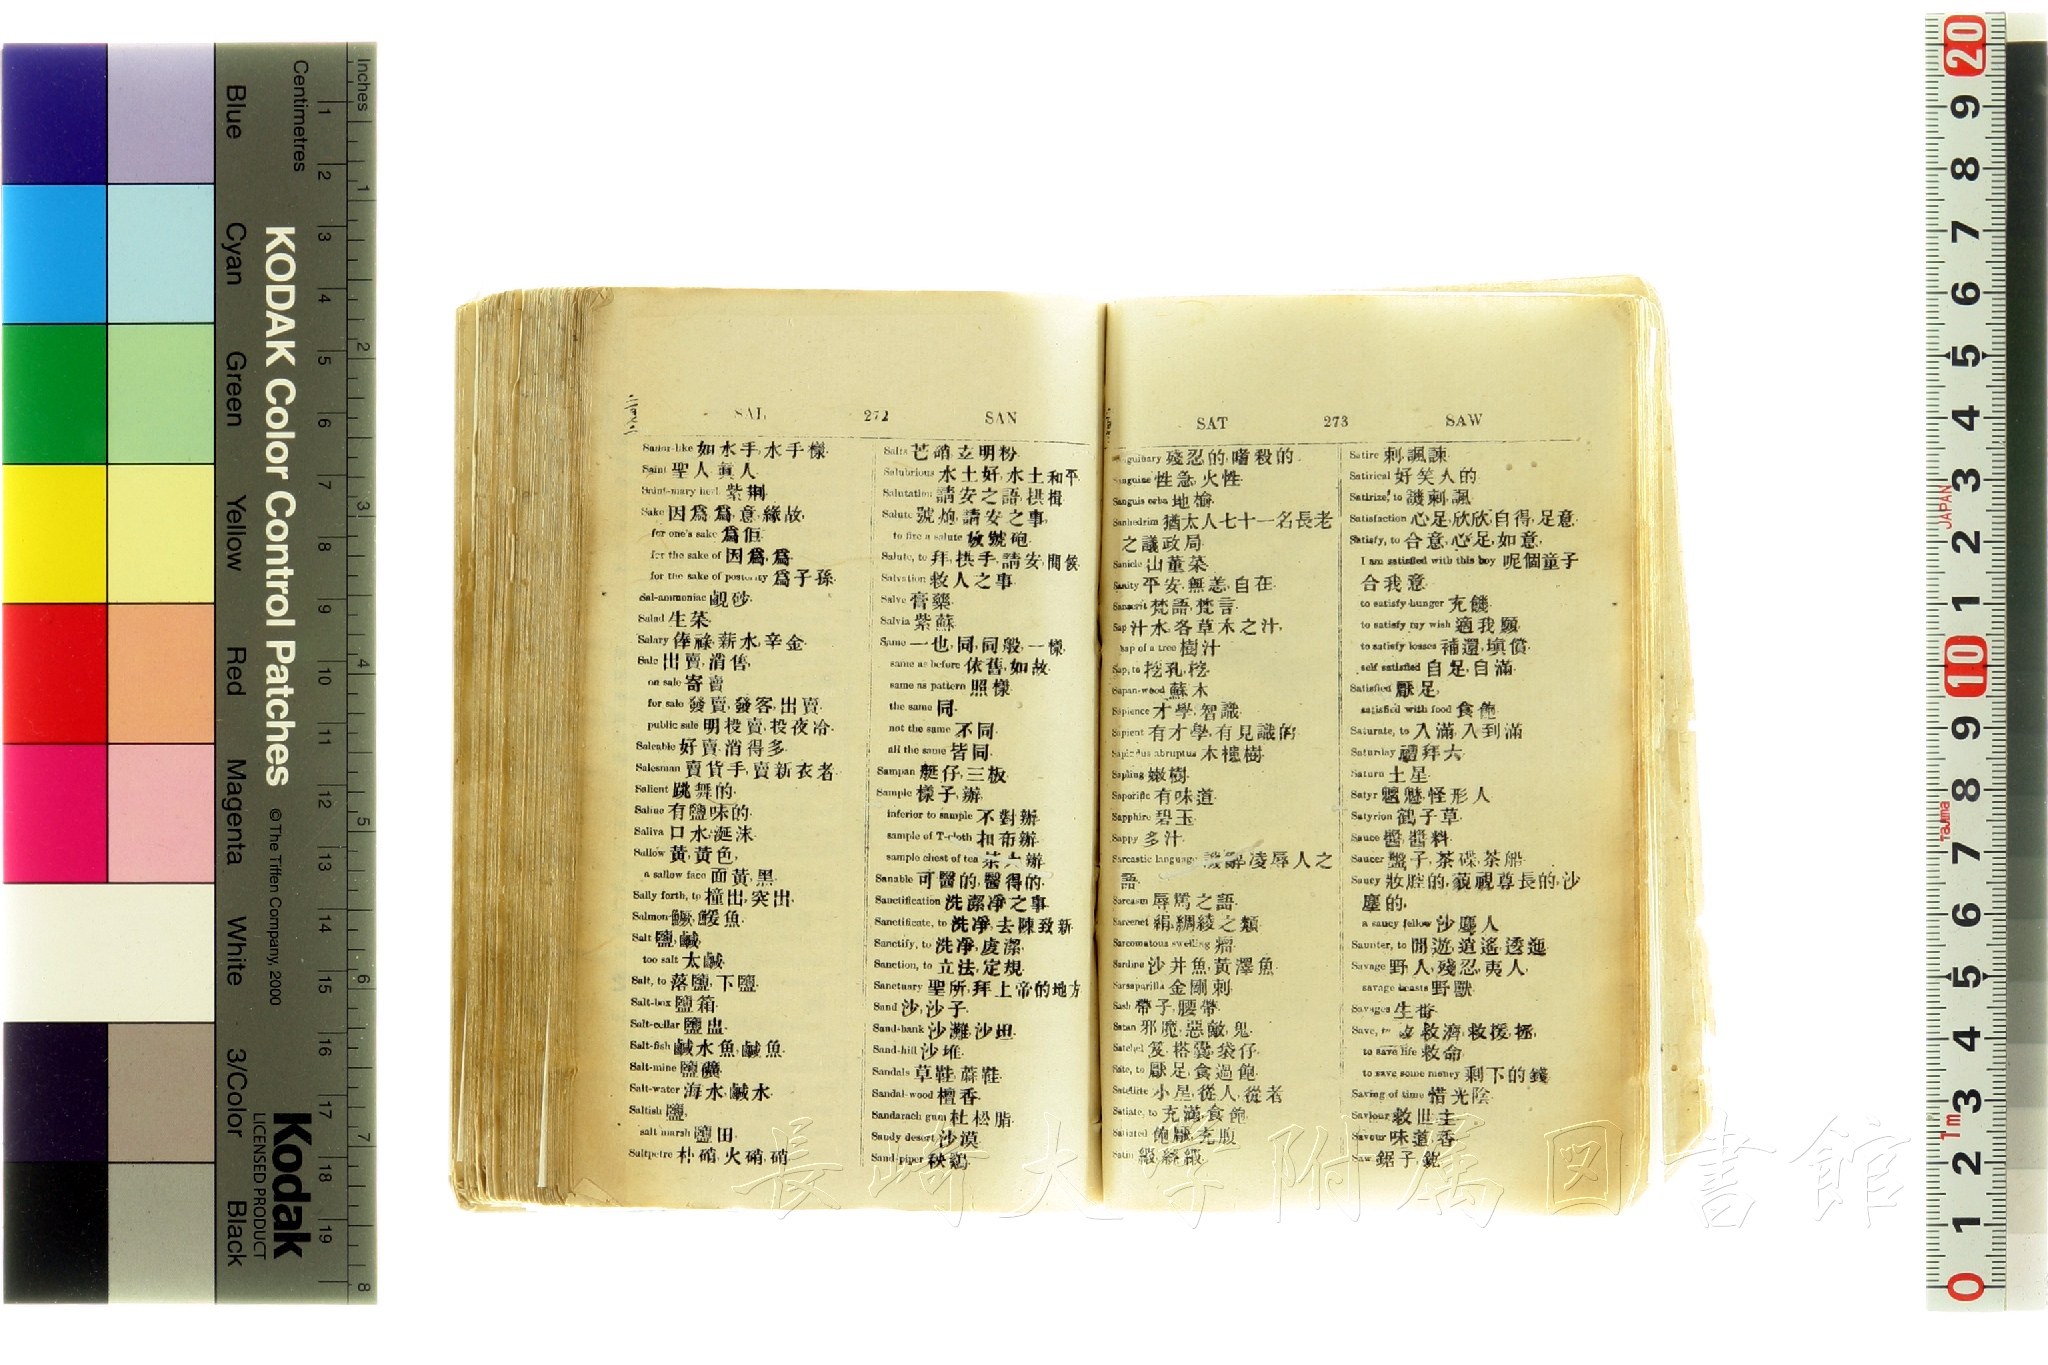 SAL 272 SAN
Sailor-like 如水手,水手樣.
Saint 聖人眞人.
Saint-mary herb 紫荆.
Sake 因爲,爲,意,緣故,
for one's sake 爲佢.
for the sake of 因爲,爲.
for the sake of posterity 爲子孫.
Sal-ammoniac 硇砂.
Salad 生菜.
Salary 俸祿,薪水,辛金.
Sale 出賣,消售,
on sale 寄賣
for sale 發賣,發客,出賣.
public sale 明投賣,投夜冷.
Saleable 好賣,消得多.
Salesman 賣貨手,賣新衣者.
Salient 跳舞的.
Saline 有鹽味的.
Saliva 口水,涎沫.
Sallow 黃,黃色,
a sallow face 面黃,黑.
Sally forth, to 撞出,突出.
Salmon 魚.
Salt 鹽,鹹.
too salt 太鹹.
Salt, to 落鹽,下鹽.
Salt-box 鹽箱.
Salt-cellar 鹽盅.
Salt-fish 鹹水魚,鹹魚.
Salt-mine 鹽礦.
Salt-water 海水,鹹水.
Saltish 鹽,
salt marsh 鹽田.
Saltpetre 朴硝,火硝,硝.
Salts 芒硝,玄明粉.
Salubrious 水土好,水土和平.
Salutation 請安之語,拱揖.
Salute 號炮,請安之事,
to fire a salute 放號砲.
Salute, to 拜,拱手,請安,問候.
Salvation 救人之事.
Salve 膏藥.
Salvia 紫蘇.
Same 一也,同,同般,一樣,
same as before 依舊,如故.
same as pattern 照樣.
the same 同.
not the same 不同.
all the same 皆同.
Sampan 艇仔,三板.
Sample 樣子,辦,
inferior to sample 不對辦.
sample of T-cloth 扣布辦.
sample chest of tea 茶 辦.
Sanable 可醫的,醫得的.
Sanctification 洗潔凈之事.
Sanctificate, to 洗凈,去陳致新.
Sanctify, to 洗凈,虔潔.
Sanction, to 立法,定規.
Sanctuary 聖所,拜上帝的地方.
Sand 沙,沙子.
Sand-bank 沙灘,沙坦.
Sand-hill 沙堆.
Sandals 草鞋,蔴鞋.
Sandal-wood 檀香.
Sandarach gum 杜松脂.
Sandy desert 沙漠.
Sand-piper 秧鷄.
SAT 273 SAW
殘忍的,嗜殺的.
Sanguine 性急,火性.
Sanguis orba 地榆.
Sanhedrim 猶太人七十一名長老
之議政局.
Sanicle 山菫菜.
Sanity 平安,無恙,自在.
Sanscrit 梵語,梵言.
Sap 汁水,各草木之汁,
sap of a tree 樹汁.
Sap, to 挖孔,挖.
Sapan-wood 蘇木.
Sapience 才學,智識.
Sapient 有才學,有見識的.
Sapindus abruptus 木槵樹.
Sapling 嫩樹.
Saporific 有味道.
Sapphire 碧玉.
Sappy 多汁.
Sarcastic language 凌辱人之
語.
Sarcasm 辱罵之語.
Sarcenet 絹,綢綾之類.
Sarcomatous swelling 瘤.
Sardine 沙井魚,黃澤魚.
Sarsaparilla 金剛刺.
Sash 帶子,腰帶.
Satan 邪魔,惡敵,鬼.
Satchel 笈,搭 袋仔.
Sate, to 厭足,食過飽.
Satellite 小星,從人,從者.
Satiate, to 充滿,食飽.
Satiated 飽厭,充腹.
Satin 緞
Satire 刺,諷諫.
Satirical 好笑人的.
Satirize, to 譏刺,諷.
Satisfaction 心足,欣欣,自得,足意.
Satisfy, to 合意,心足,如意,
I am satisfied with this boy 呢個童子
合我意.
to satisfy hunger 充饑.
to satisfy my wish 適我願.
to satisfy losses 補還,塡償.
self satisfied 自足,自滿.
Satisfied 厭足,
satisfied with food 食飽.
Saturate, to 入滿,入到滿.
Saturday 禮拜六.
Saturn 土星.
Satyr 魑魅,怪形人.
Satyrion 鶴子草.
Sauce 醬,醬料.
Saucer 盤子,茶碟,茶船.
Saucy 妝腔的,藐視尊長的,沙
塵的,
a saucy fellow 沙塵人.
Saunter, to 閒遊,逍遙,透迤.
Savage 野人,殘忍,夷人,
savage beasts 野獸.
Savages 生番.
Save, to 救,救濟,救援,拯,
to save life 救命.
to save some money 剩下的錢.
Saving of time 惜光陰.
Saviour 救世主.
Savour 味道,香.
Saw 鋸子,
長崎大学附属図書館
KODAK Color Control Patches
© The Tiffen Company, 2000
Kodak
LICENSED PRODUCT
Blue
Cyan
Green
Yellow
Red
Magenta
White
3/Color
Black
Centimetres
1 2 3 4 5 6 7 8 9 10 11 12 13 14 15 16 17 18 19
Inches
1 2 3 4 5 6 7 8
20 9 8 7 6 5 4 3 2 1 10 9 8 7 6 5 4 3 2 1 0
JAPAN
Tajima
1m